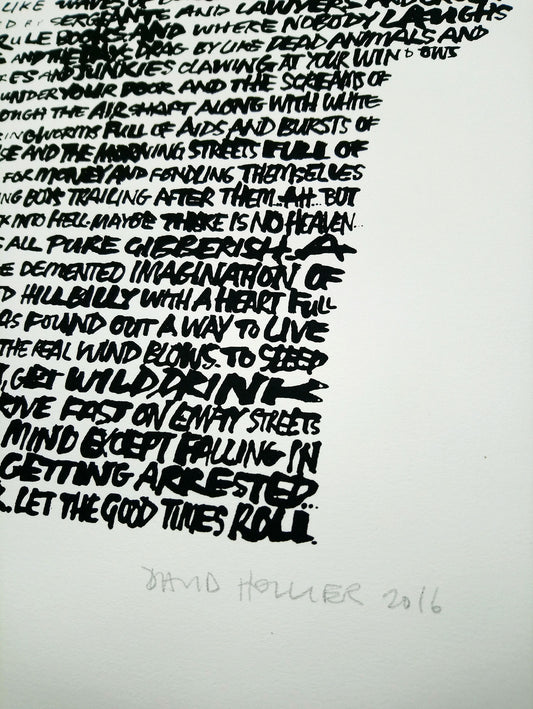 LIKE WAVES OF
SERGEANTS AND LAWYERS AND
RULE BOOKS AND WHERE NOBODY LAUGHS
AND THE DRAG BY LIKE DEAD ANIMALS AND
ES AND JUNKIES CLAWING AT YOUR WINDOWS
UNDER YOUR DOOR AND THE SCREAMS OF
OUGH THE AIR SHAFT ALONG WITH WHITE
RINGWORMS FULL OF AIDS AND BURSTS OF
SE AND THE MORNING STREETS FULL OF
FOR MONEY AND FONDLING THEMSELVES
NG BOYS TRAILING AFTER THEM. AH.. BUT
K INTO HELL MAYBE THERE IS NO HEAVEN...
S ALL PURE GIBBERISH. A
E DEMENTED IMAGINATION OF
D HILLBILLY WITH A HEART FULL
AS FOUND OUT A WAY TO LIVE
THE REAL WIND BLOWS. TO SLEEP
, GET WILD DRINK
RIVE FAST ON EMPTY STREETS
MIND EXCEPT FALLING IN
GETTING ARRESTED...
. LET THE GOOD TIMES ROLL.
DAVID HOLLIER 2016